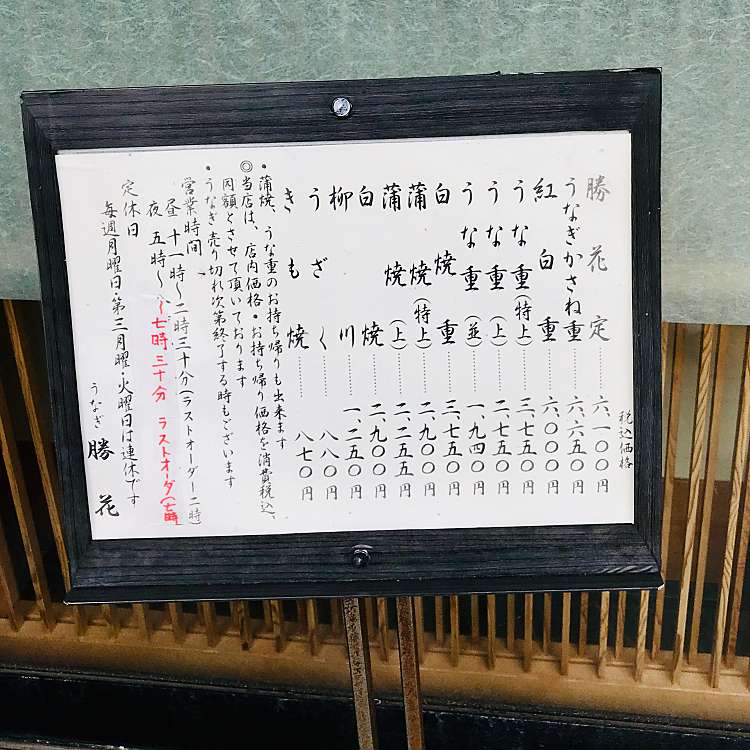 税込価格
勝花定……六、一〇〇円
うなぎかさね重……六、六五〇円
紅白重……六、〇〇〇円
うな重(特上)……三、七五〇円
うな重(上)……二、七五五円
うな重(並)……一、九四〇円
白焼重……三、七五〇円
蒲焼(特上)……二、九〇〇円
蒲焼(上)……二、二五五円
白焼……二、九〇〇円
柳川……一、二五〇円
うざく……八八〇円
きも焼……八七〇円
・蒲焼、うな重のお持ち帰りも出来ます
◎当店は、店内価格・お持ち帰り価格を消費税込、
同額とさせて頂いております
・うなぎ売り切れ次第終了する時もございます
営業時間
昼 十一時〜二時三十分(ラストオーダー二時)
夜 五時〜七時三十分 ラストオーダ(七時)
定休日
毎週月曜日第三月曜・火曜日は連休です
うなぎ 勝花